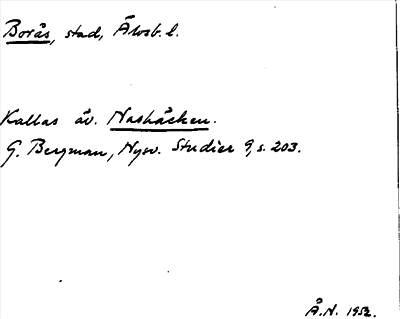 Borås, stad, Älvsb. l.
Kallas äv. Nashäcken.
G. Bergman, Nysv. Studier 9, s. 203.
Å.N. 1952.